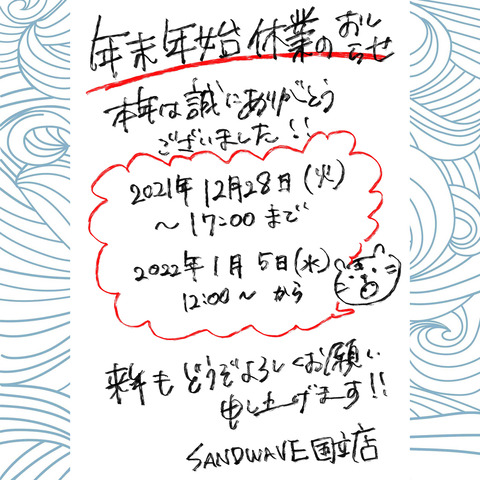 年末年始休業のおしらせ
本年は誠にありがとう
ございました!!
2021年12月28日(火)
〜17:00まで
2022年1月5日(水)
12:00〜から
来年もどうぞよろしくお願い
申し上げます!!
SANDWAVE国立店